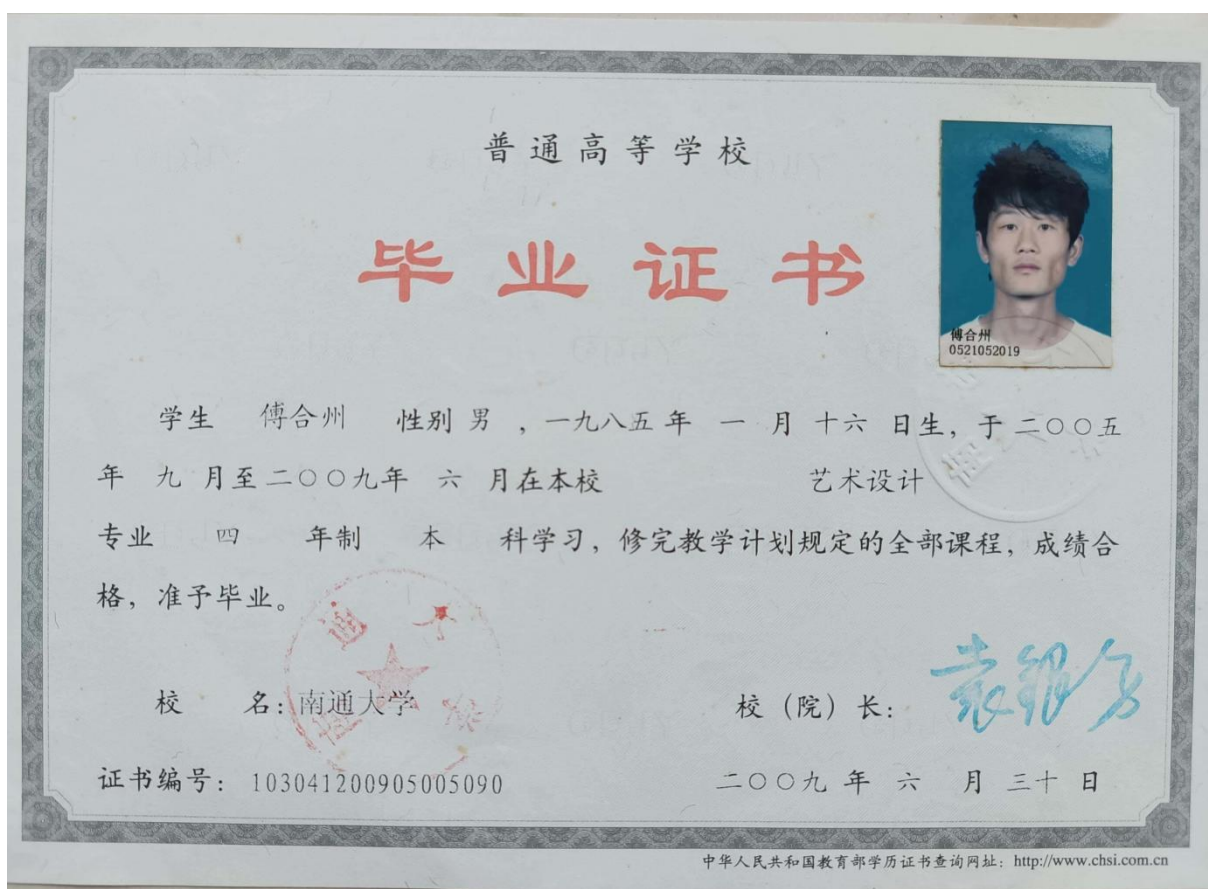 普通高等学校
毕业证书
傅合州
0521052019
学生 傅合州 性别 男 ，一九八五 年 一 月 十六 日生，于 二〇〇五
年 九 月至 二〇〇九年 六 月在本校 艺术设计
专业 四 年制 本 科学习，修完教学计划规定的全部课程，成绩合
格，准予毕业。
校 名：南通大学
校（院）长：
证书编号： 103041200905005090
二〇〇九 年 六 月 三十 日
中华人民共和国教育部学历证书查询网址：http://www.chsi.com.cn